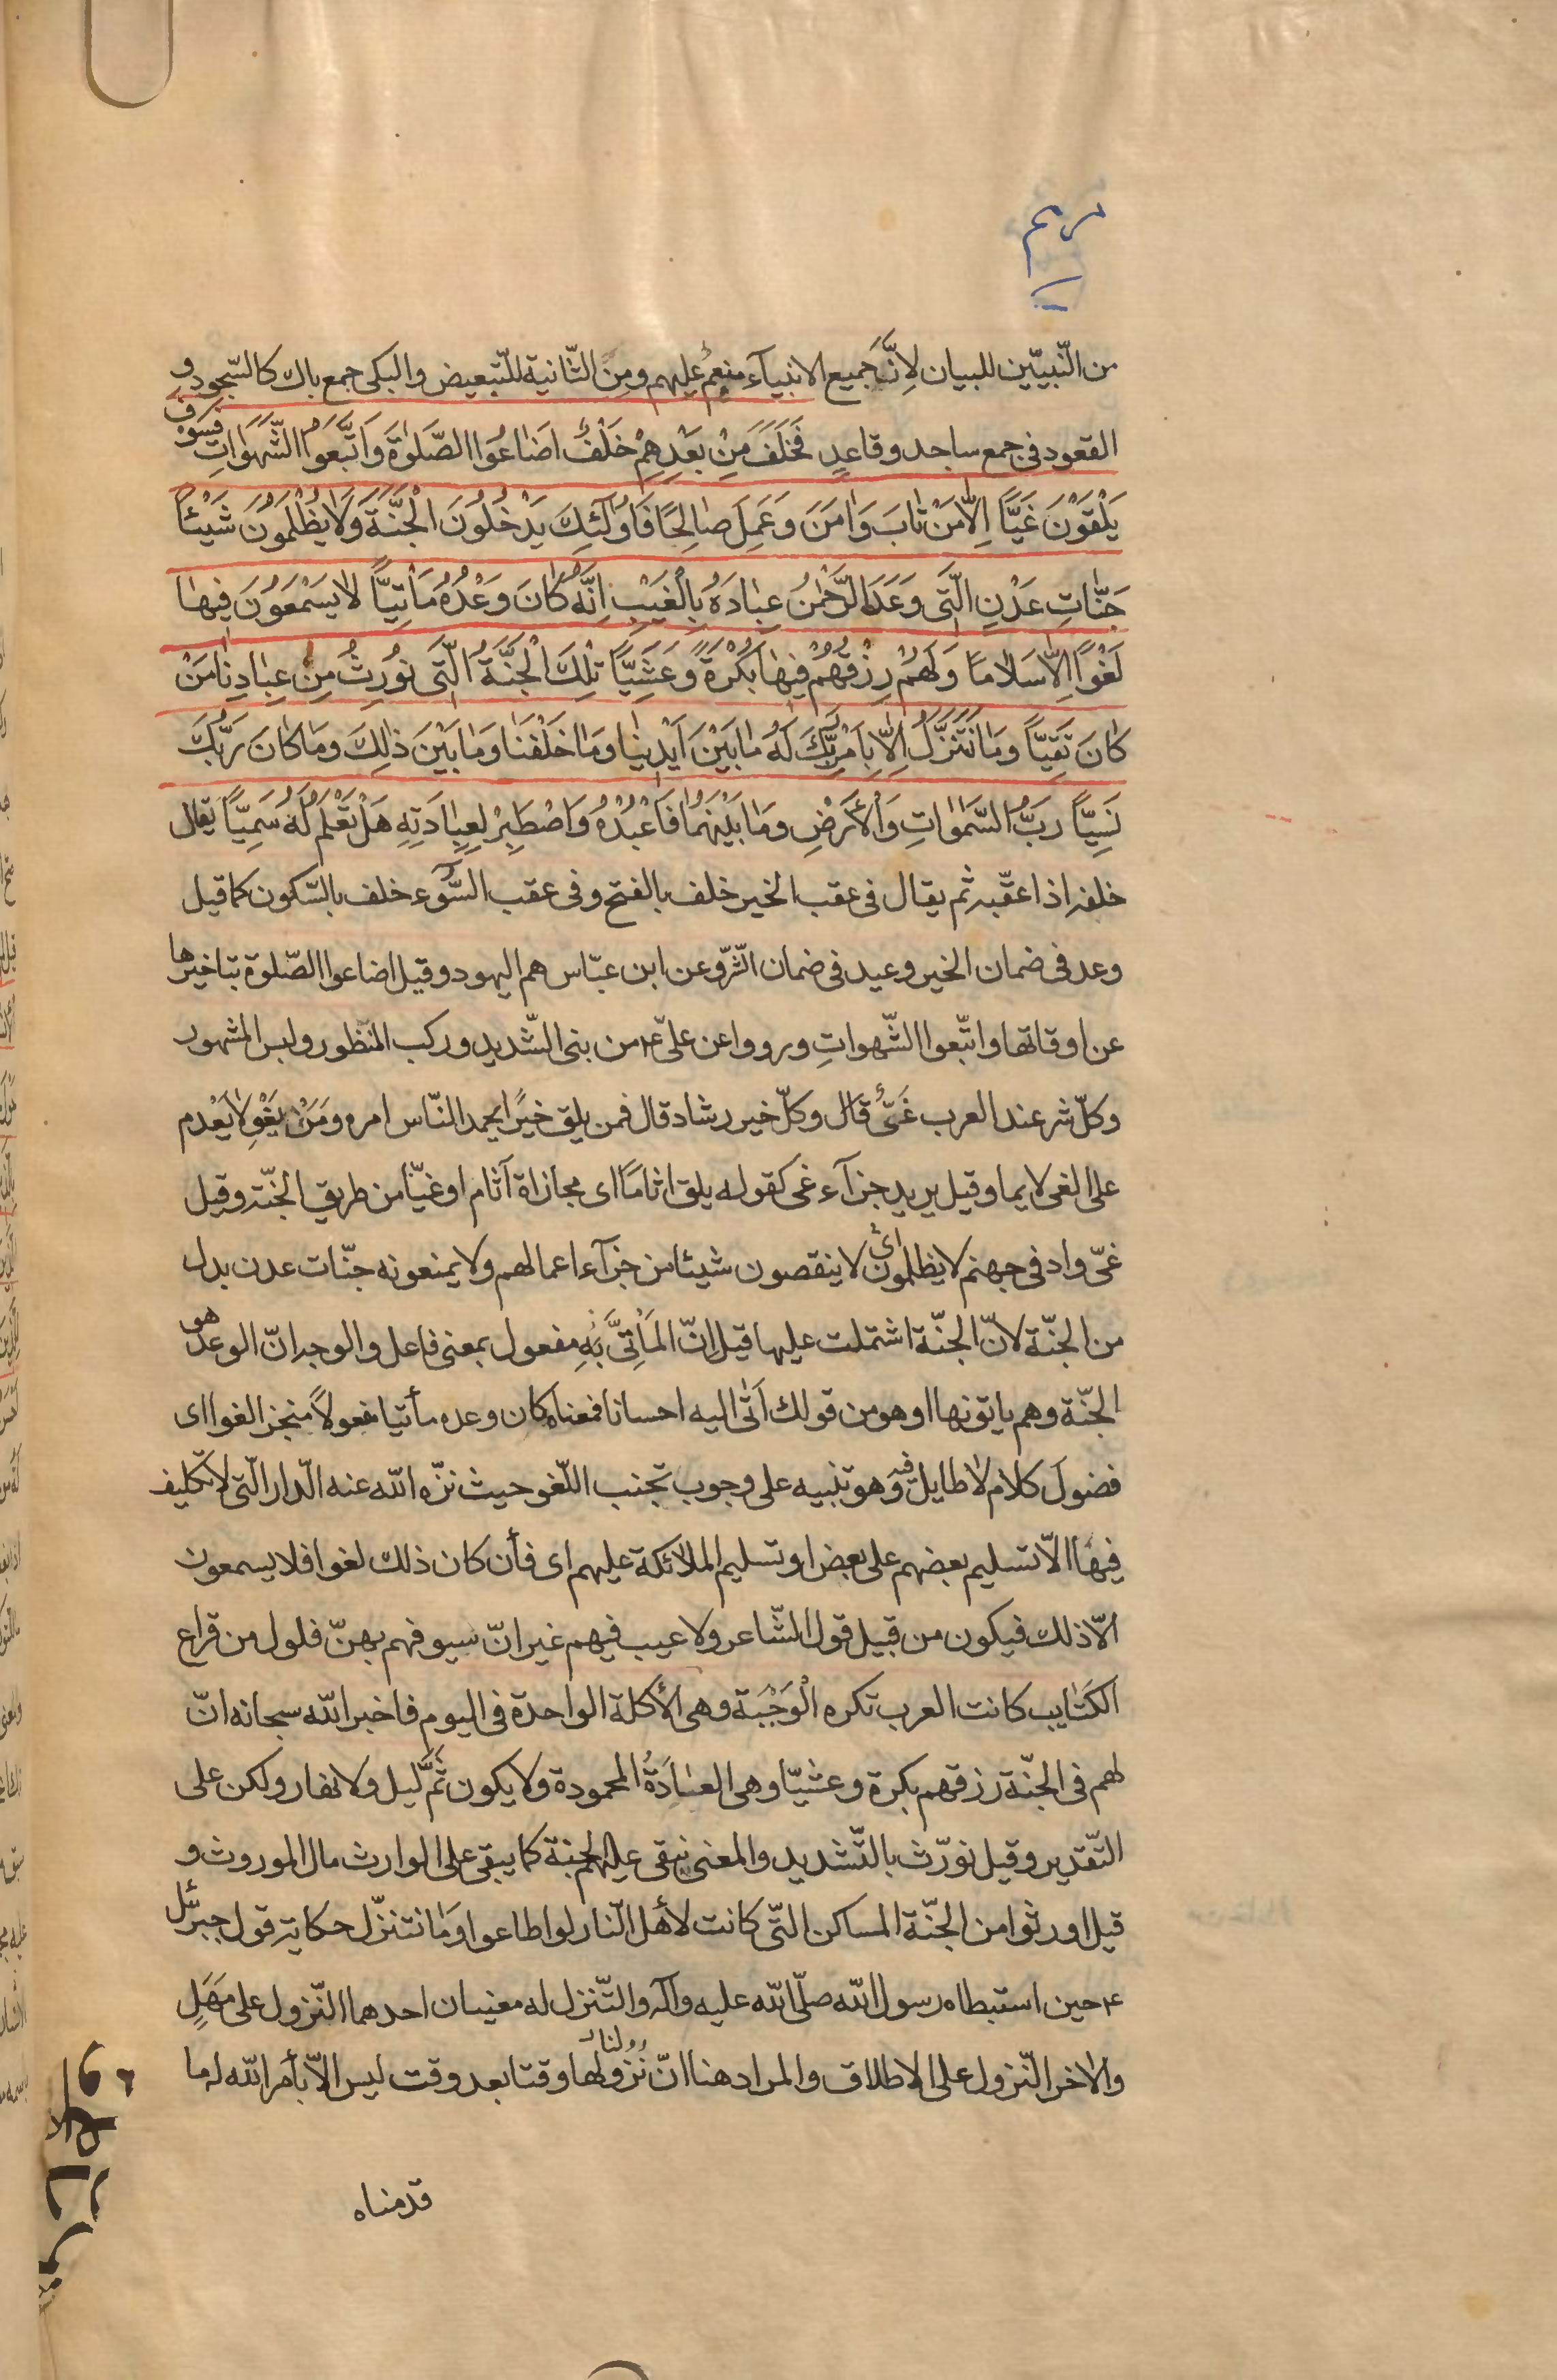 مريم
من النّبيّين للبيان لِانَّ جميع الانبيآء منعم عليهم ومِن الثّانية للتّبعيض والبكى جمع باك كالسّجود و
القعود فى جمع ساجد وقاعدٍ فَخَلَفَ مِنْ بَعْدِهِمْ خَلْفٌ اَضٰاعُوا الصَّلٰوةَ وَاتَّبَعُوا الشَّهَوٰاتِ فَسَوْفَ
يَلْقَوْنَ غَيًّا اِلاّٰ مَنْ تٰابَ وَاٰمَنَ وَعَمِلَ صٰالِحًا فَاُولٰئِكَ يَدْخُلُونَ الْجَنَّةَ وَلاٰ يُظْلَمُونَ شَيْئًا
جَنّٰاتِ عَدْنٍ الَّتى وَعَدَ الرَّحْمٰنُ عِبٰادَهُ بِالْغَيْبِ اِنَّهُ كٰانَ وَعْدُهُ مَأْتِيًّا لاٰ يَسْمَعُونَ فيهٰا
لَغْوًا اِلاّٰ سَلاٰمًا وَلَهُمْ رِزْقُهُمْ فيهٰا بُكْرَةً وَعَشِيًّا تِلْكَ الْجَنَّةُ الَّتى نُورِثُ مِنْ عِبٰادِنٰا مَنْ
كٰانَ تَقِيًّا وَمٰا نَتَنَزَّلُ اِلاّٰ بِاَمْرِ رَبِّكَ لَهُ مٰا بَيْنَ اَيْدينٰا وَمٰا خَلْفَنٰا وَمٰا بَيْنَ ذٰلِكَ وَمٰا كٰانَ رَبُّكَ
نَسِيًّا رَبُّ السَّمٰوٰاتِ وَالْأَرْضِ وَمٰا بَيْنَهُمٰا فَاعْبُدْهُ وَاصْطَبِرْ لِعِبٰادَتِهِ هَلْ تَعْلَمُ لَهُ سَمِيًّا يقال
خلفه اذا عقّبه ثم يقال فى عقب الخير خلف بالفتح وفى عقب السُّوء خلف بالسّكون كما قيل
وعد فى ضمان الخير وعيد فى ضمان الشّرّ وعن ابن عبّاس هم اليهود وقيل اضاعوا الصّلوة بتاخيرها
عن اوقاتها واتّبعوا الشّهواتِ ورووا عن علىّ ع من بنى الشّديد وركب المنظور ولبس المشهور
وكلّ شر عند العرب غَىٌّ وكلّ خير رشاد قال فمن يلق خيرًا يحمد النّاس امره ومَنْ يَغْوِ لا يَعْدم
على الغى لايما وقيل يريد جزآء غى كقوله يلق اثامًا اى مجازاة آثام او غيّا من طريق الجنّة وقيل
غىّ واد فى جهنم لا يظلمون اى لا ينقصون شيئا من جزآء اعمالهم ولا يمنعونه جنّات عدن بدل
من الجنّة لانّ الجنّة اشتملت عليها قيل انّ المَأْتِىَّ به مفعول بمعنى فاعل والوجه انّ الوعد هو
الجنّة وهم ياتونها او هو من قولك اَتٰى اليه احسانا فمعناه كان وعده مأتيا مفعولاً منجز الغوا اى
فضولَ كلام لا طايل فيه وهو تنبيه على وجوب تجنب اللّغو حيث نزّه الله عنه الدّار الّتى لا تكليف
فيها الاّ تسليم بعضهم على بعض او تسليم الملائكة عليهم اى فأن كان ذلك لغوا فلا يسمعون
الاّ ذلك فيكون من قبيل قول الشّاعر ولا عيب فيهم غير انّ سيوفهم بهنّ فلول من قراع
الكتٰايب كانت العرب تكره الْوَجْبَة وهى الأكلة الواحدة فى اليوم فاخبر الله سبحانه انّ
لهم فى الجنّة رزقهم بكرة وعشيّا وهى العٰادَةُ المحمودة ولا يكون ثَمَّ ليل ولا نهار ولكن على
التّقدير وقيل نورّث بالتّشديد والمعنى نبقى عليهم الجنة كما يبقى على الوارث مال الموروث و
قيل اورثوا من الجنّة المساكن التّى كانت لأهل النّار لو اطاعوا وَمٰا نتنزّل حكاية قول جبرئيل
ع حين استبطاه رسول الله صلّى الله عليه وآله والتّنزل له معنيان احدهما النّزول على مَهَلٍ
والاخر النّزول على الاطلاق والمراد هنا انّ نزولنا وقتا بعد وقت ليس الاّ بأمر الله له ما
قدمناه